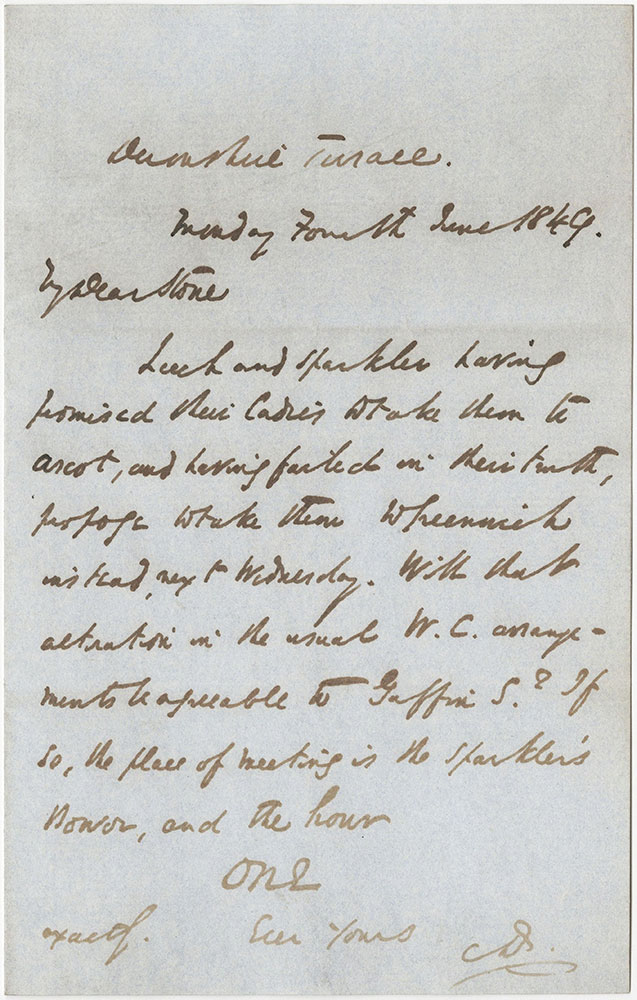 Devonshire Terrace.
Monday Fourth June 1849.
My Dear Stone
Leech and Sparkler having
promised their Ladies to take them to
Ascot, and having failed in their truth,
propoge to take them to Greenwich
instead, next Wednesday. Will that
alteration in the usual W. C. arrange-
ments be agreeable to Gaffin S.? If
so, the place of meeting is the Sparkler's
Bower, and the hour
ONE
exactly. Ever Yours CD.